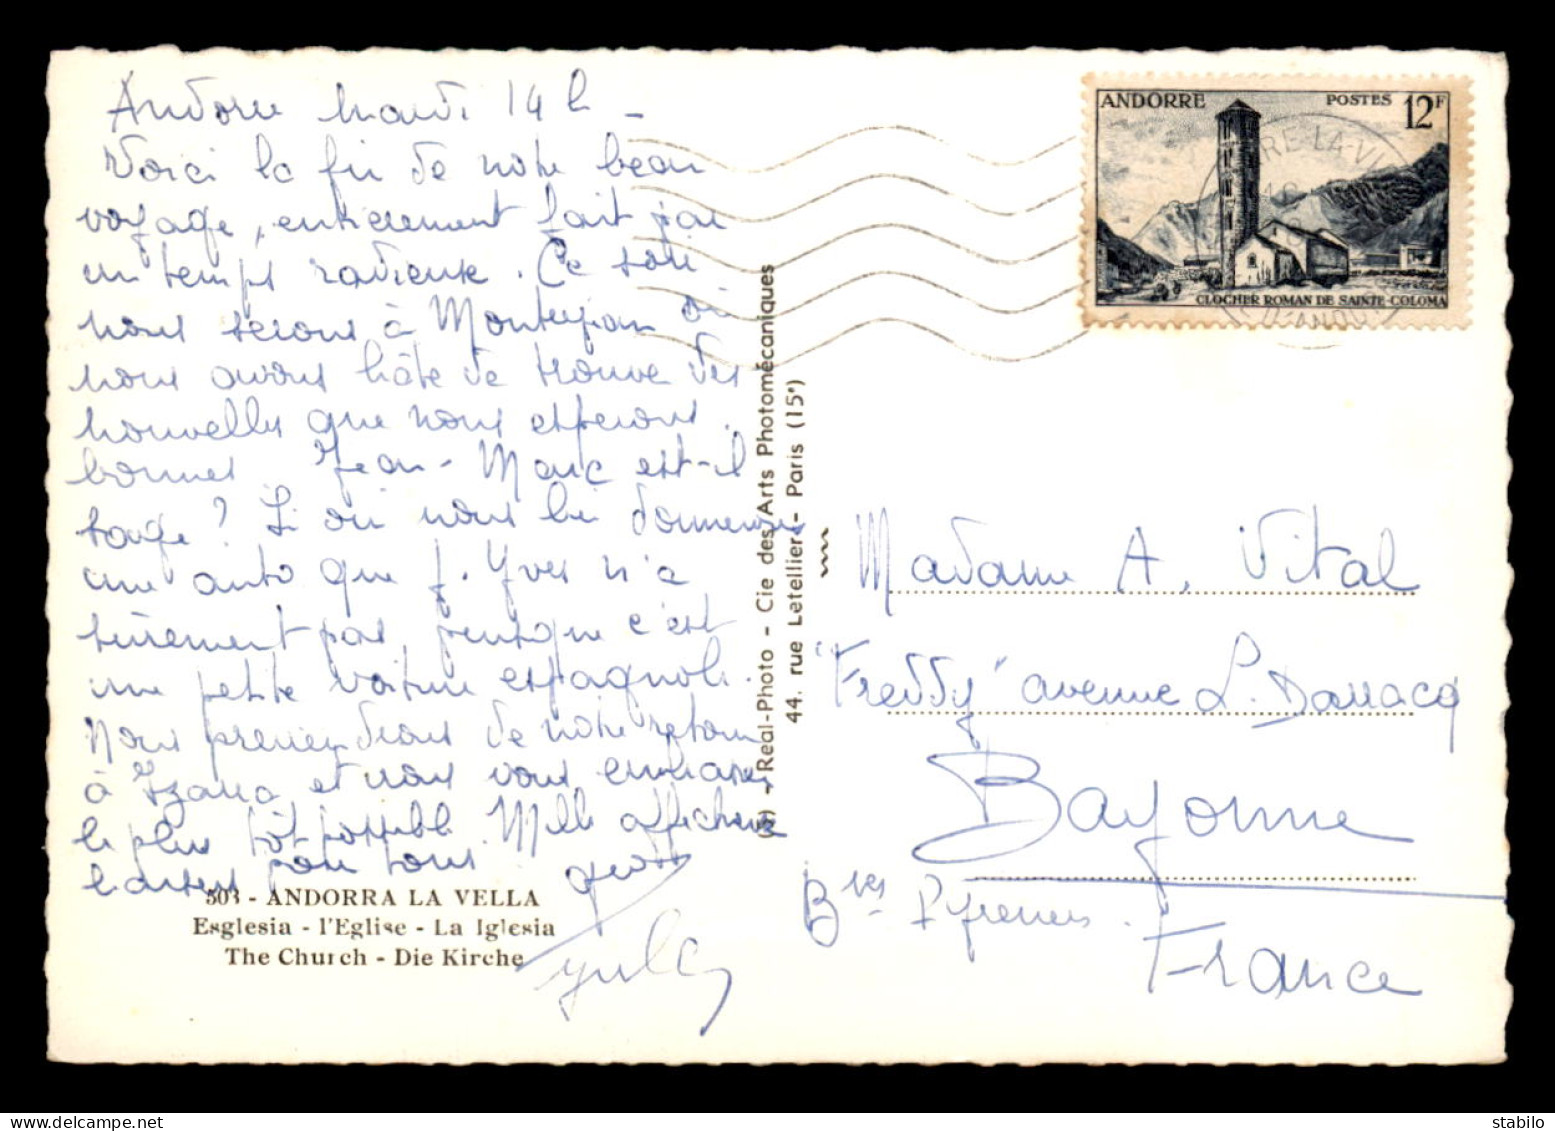 Andorre Mardi 14 h -
Voici la fin de notre beau
voyage, entièrement fait par
un temps radieux. Ce soir
nous serons à Montréjeau où
nous avons hâte de trouver des
nouvelles que nous espérons
bonnes. Jean-Marc est-il
sage? Si oui nous lui donnerons
une auto que J. Yves n'a
sûrement pas, puisque c'est
une petite voiture espagnole.
Nous préviendrons de notre retour
à et nous vous embrasser
le plus tôt possible. Mille affectueux
baisers pour tous
503 - ANDORRA LA VELLA
Esglesia - l'Eglise - La Iglesia
The Church - Die Kirche
(3) - Real-Photo - Cie des Arts Photomécaniques
44, rue Letellier - Paris (15e)
ANDORRE POSTES 12F
CLOCHER ROMAN DE SAINTE-COLOMA
Madame A. Vital
"Freddy" avenue L. Darracq
Bayonne
Bses Pyrénées.
France
stabilo